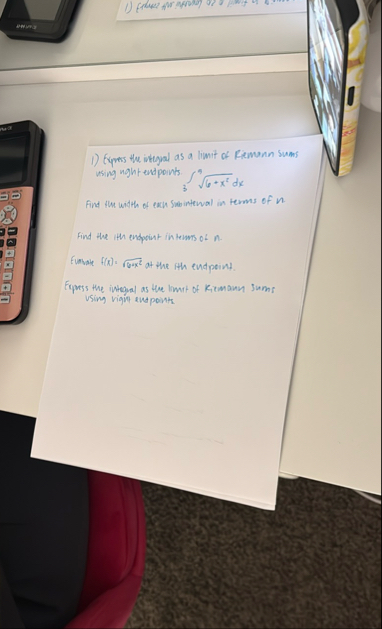 1) Express the
1) Express the integral as a limit of Riemann Sums
using right endpoints.
3∫ √6+x² dx
Find the width of each Subinterval in terms of n.
Find the ith endpoint in terms of n.
Evaluate f(x)= √6+x² at the ith endpoint.
Express the integral as the limit of Riemann Sums
using right endpoints